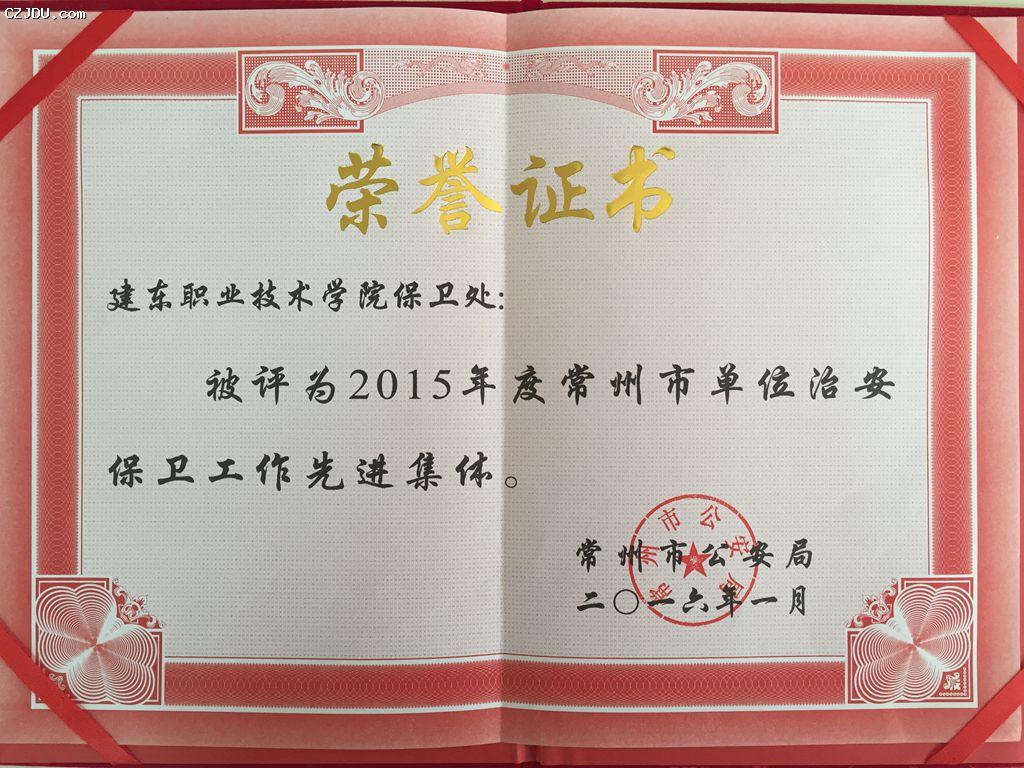 CZJDU.com
荣誉证书
建东职业技术学院保卫处:
被评为2015年度常州市单位治安
保卫工作先进集体。
常州市公安局
常州市公安局
二〇一六年一月